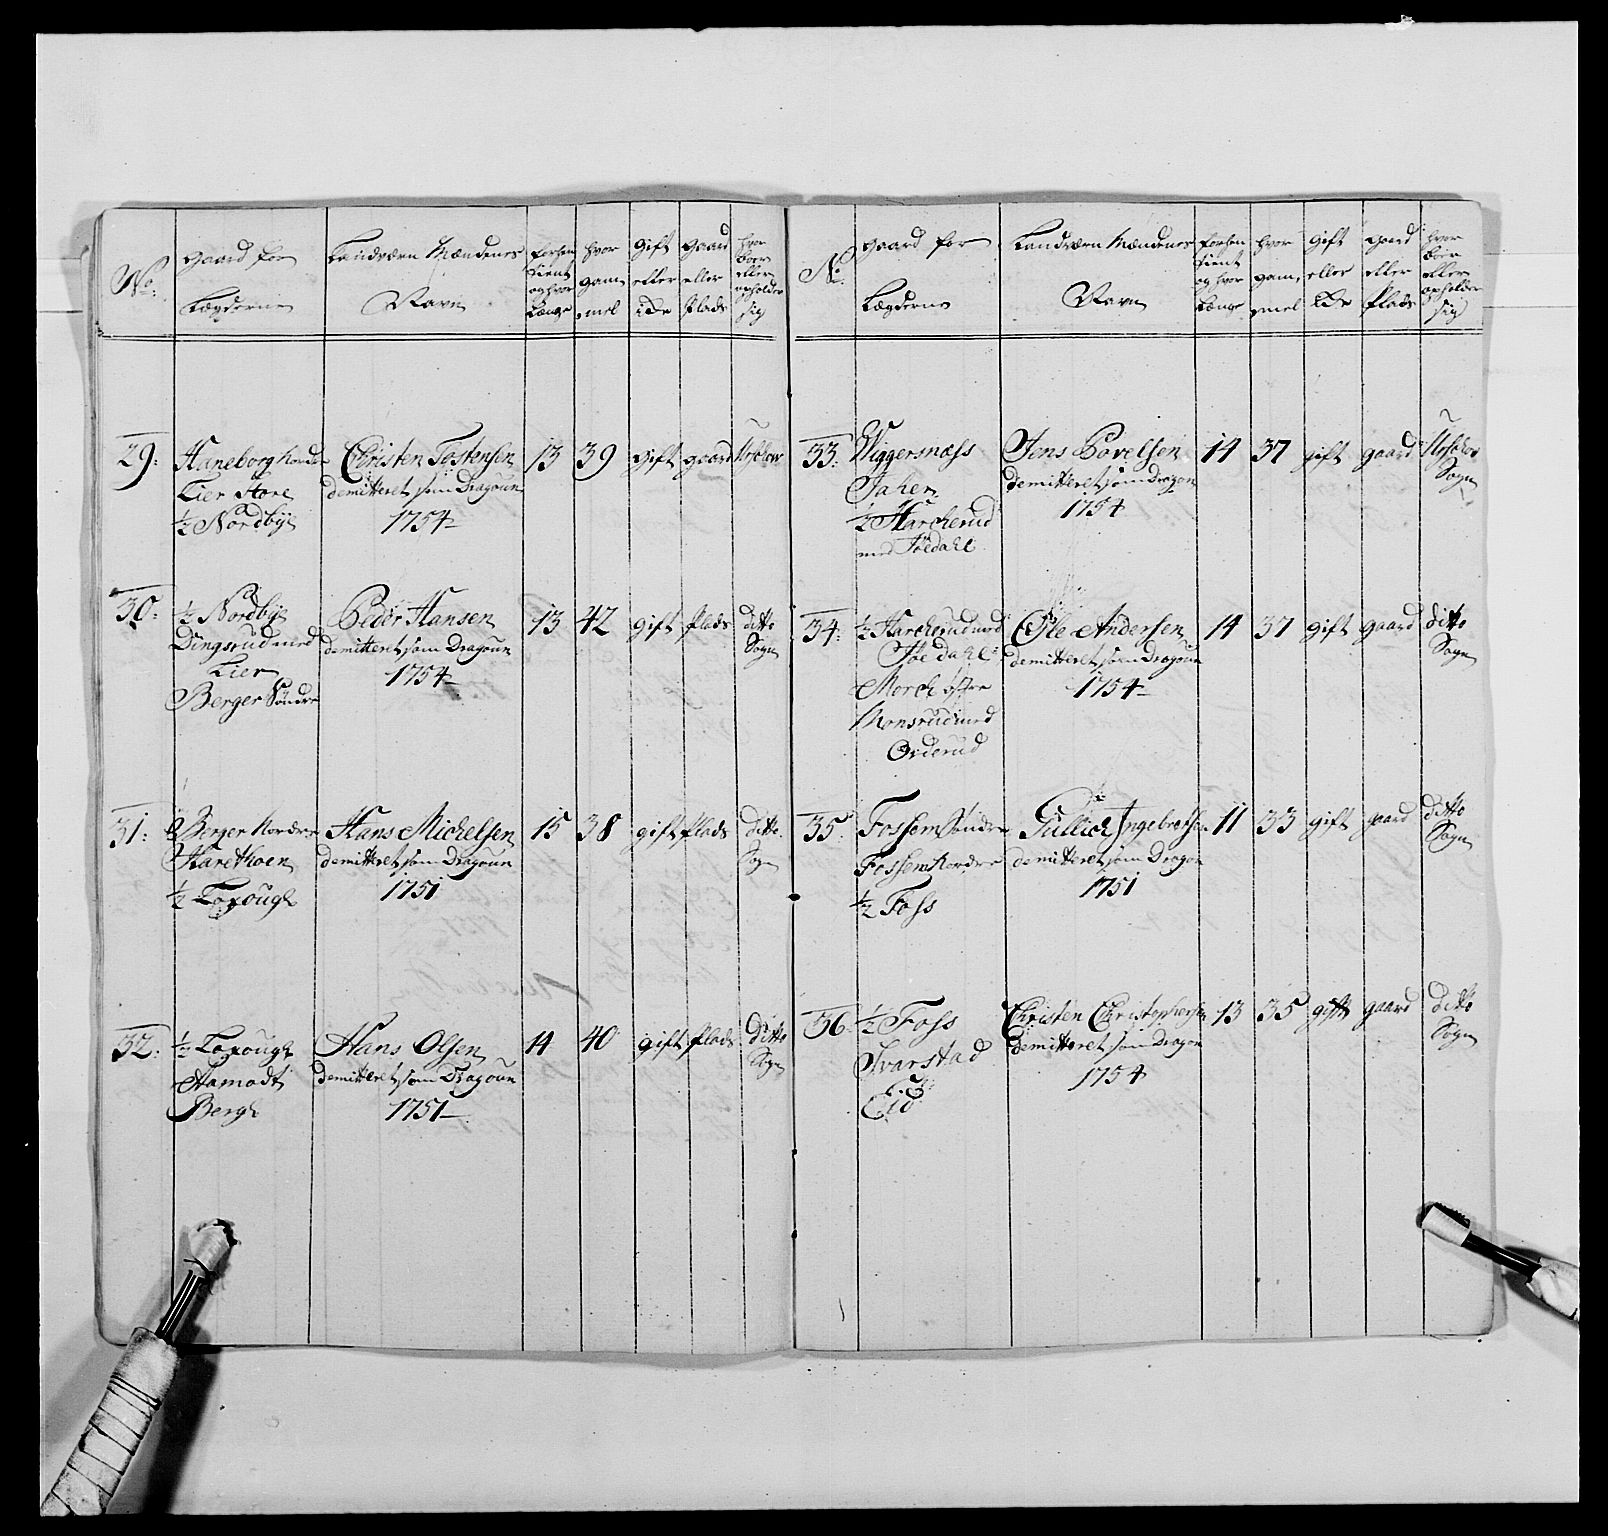 No:
gaard for
Lægderne
Landværn Mændenes
Navn
forhen
tient
og hvor
Længe
hvor
gam,
mel
gift
eller
Ide
gaard
eller
Plads
hvor
boer
eller
opholder
sig
29:
Haneborg Nordre
Lier Store
½ Nordbÿe
Christen Tostensen
demitteret som Dragoun
1754
13
39
gift
gaard
Urschou
30:
½ Nordbÿe
Dingsrud med
Lier
Berger Søndre
Peder Hansen
demitteret som Dragoun
1754
13
42
gift
Plads
ditto
Sogn
31:
Berger Nordre
Harethoen
½ Toxough
Hans Michelsen
demitteret som Dragoun
1751
15
38
gift
Plads
ditto
Sogn
32:
½ Toxough
Hamodt
Bergh
Hans Olsen
demitteret som Dragoun
1751
14
40
gift
Plads
ditto
Sogn
No:
gaard for
Lægderne
Landværn Mændenes
Navn
forhen
tient
og hvor
Længe
hvor
gam,
mel
gift
eller
Ide
gaard
eller
Plads
hvor
boer
eller
opholder
sig
33:
Wiggersnæss
Jahren
½ Harcherud
med Jøedahl
Jens Povelsen
demitteret som Dragon
1754
14
37
gift
gaard
Urschou
Sogn
34:
½ Harcherud med
Jøedahl
Morch østre
Monsrud med
Orderud
Ole Andersen
demitteret som Dragoun
1754
14
37
gift
gaard
ditto
Sogn
35:
Fossem Søndre
Fossem Nordre
½ Foss
Gullich Ingebretsen
demitteret som Dragon
1751
11
33
gift
gaard
ditto
Sogn
36:
½ Foss
Ivarstad
Eid
Christen Christophersen
demitteret som Dragon
1754
13
35
gift
gaard
ditto
Sogn